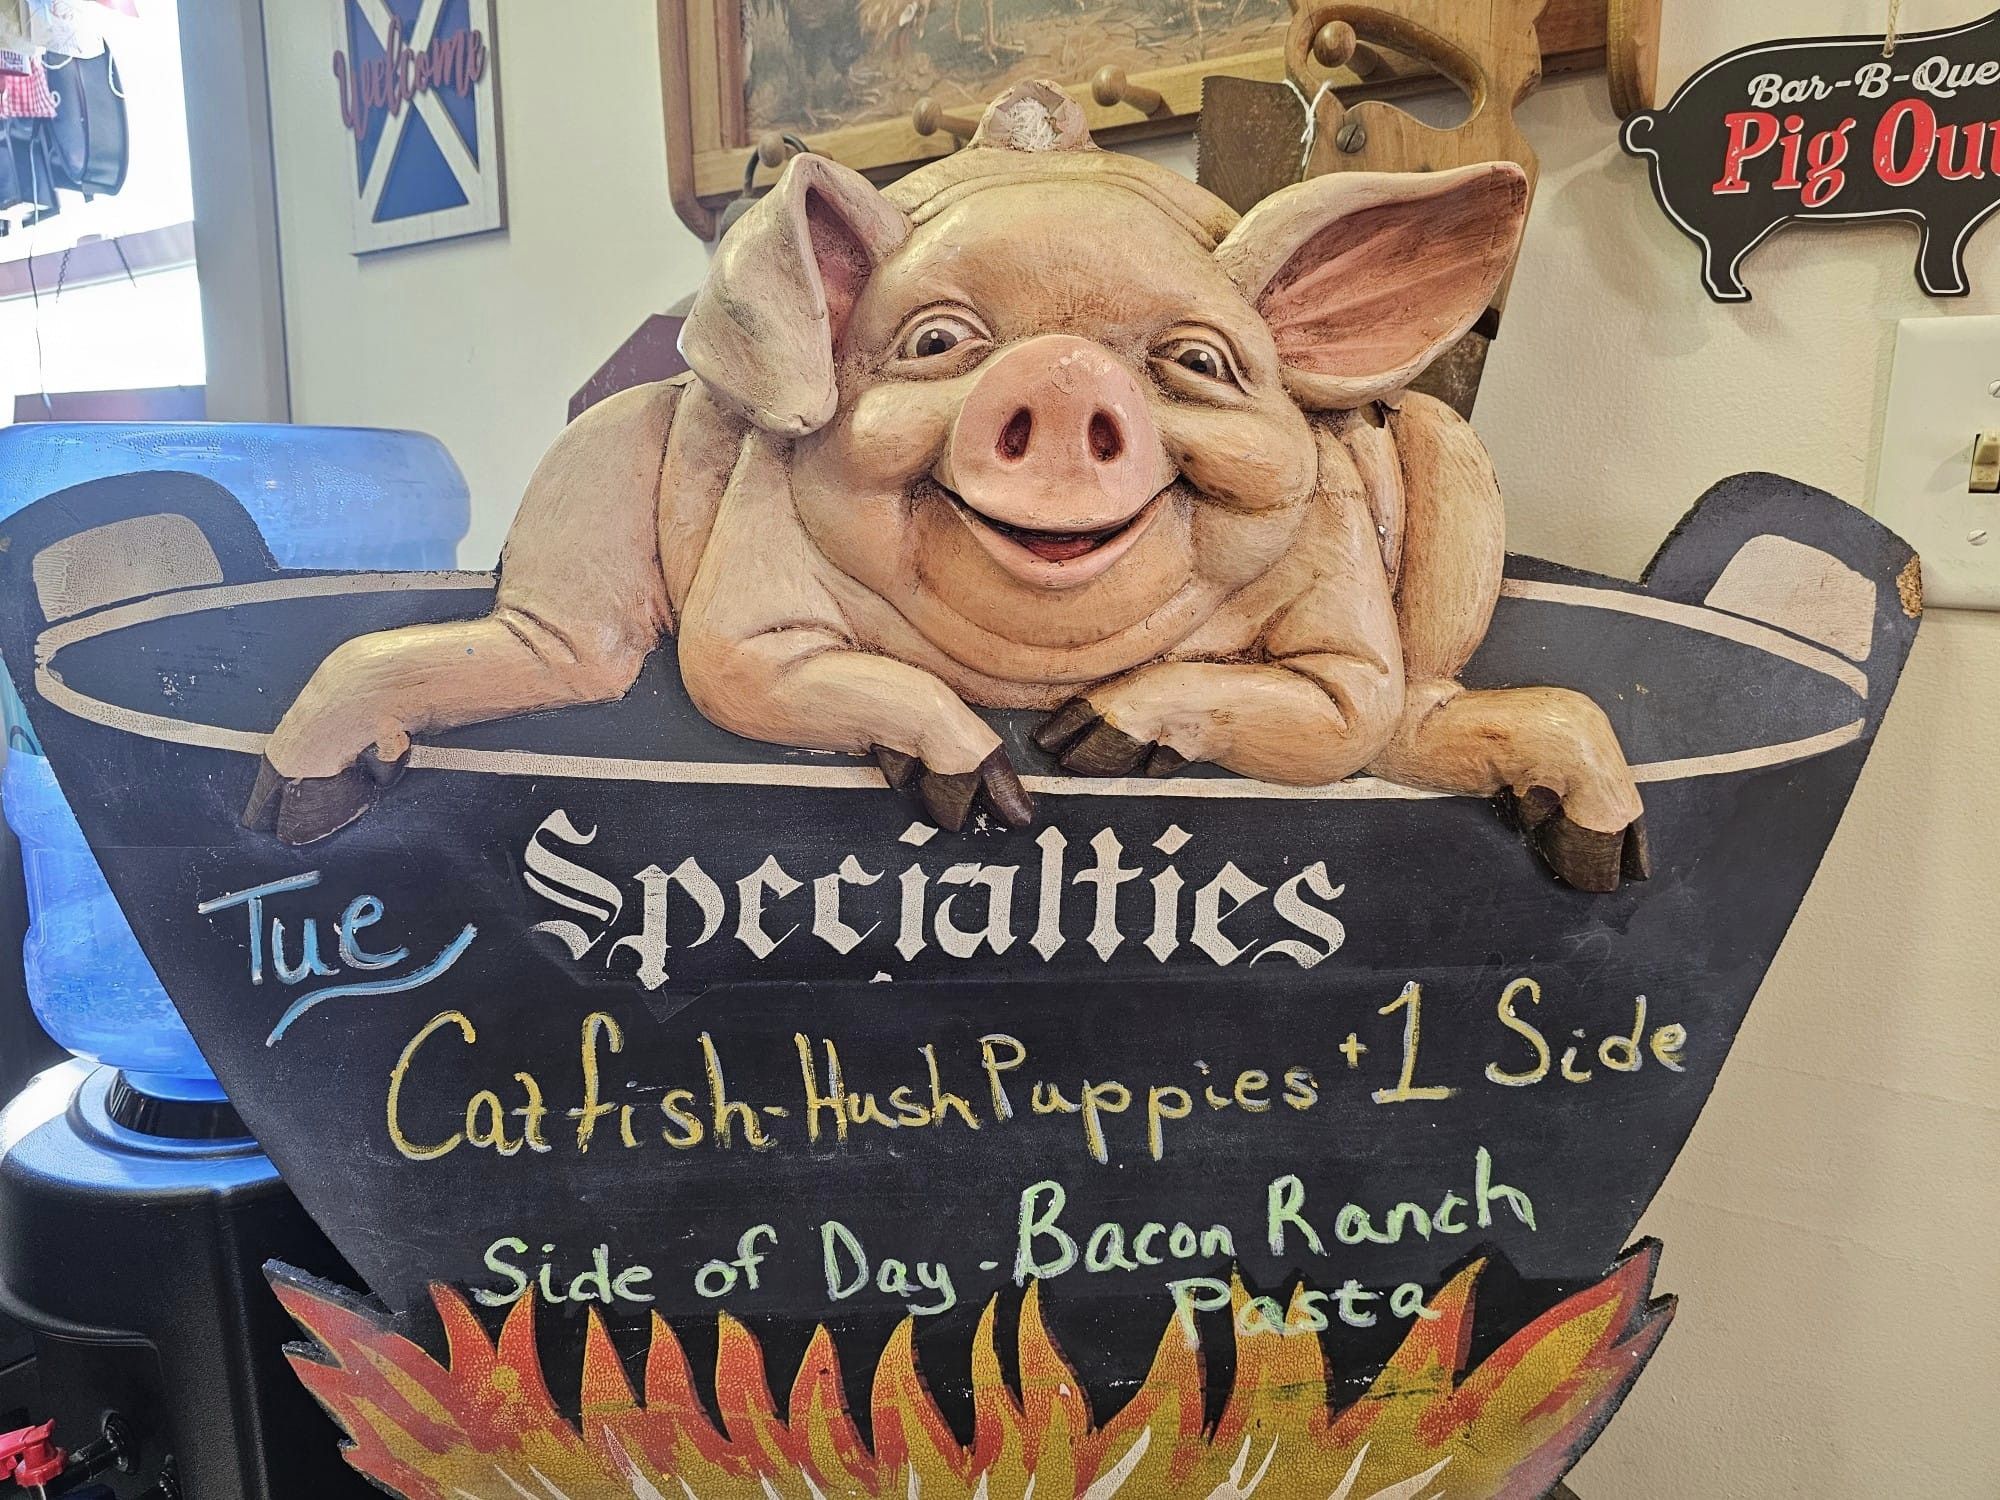 Welcome
Bar-B-Que
Pig Out
Specialties
Tue
Catfish-Hush Puppies +1 Side
Side of Day - Bacon Ranch
Pasta